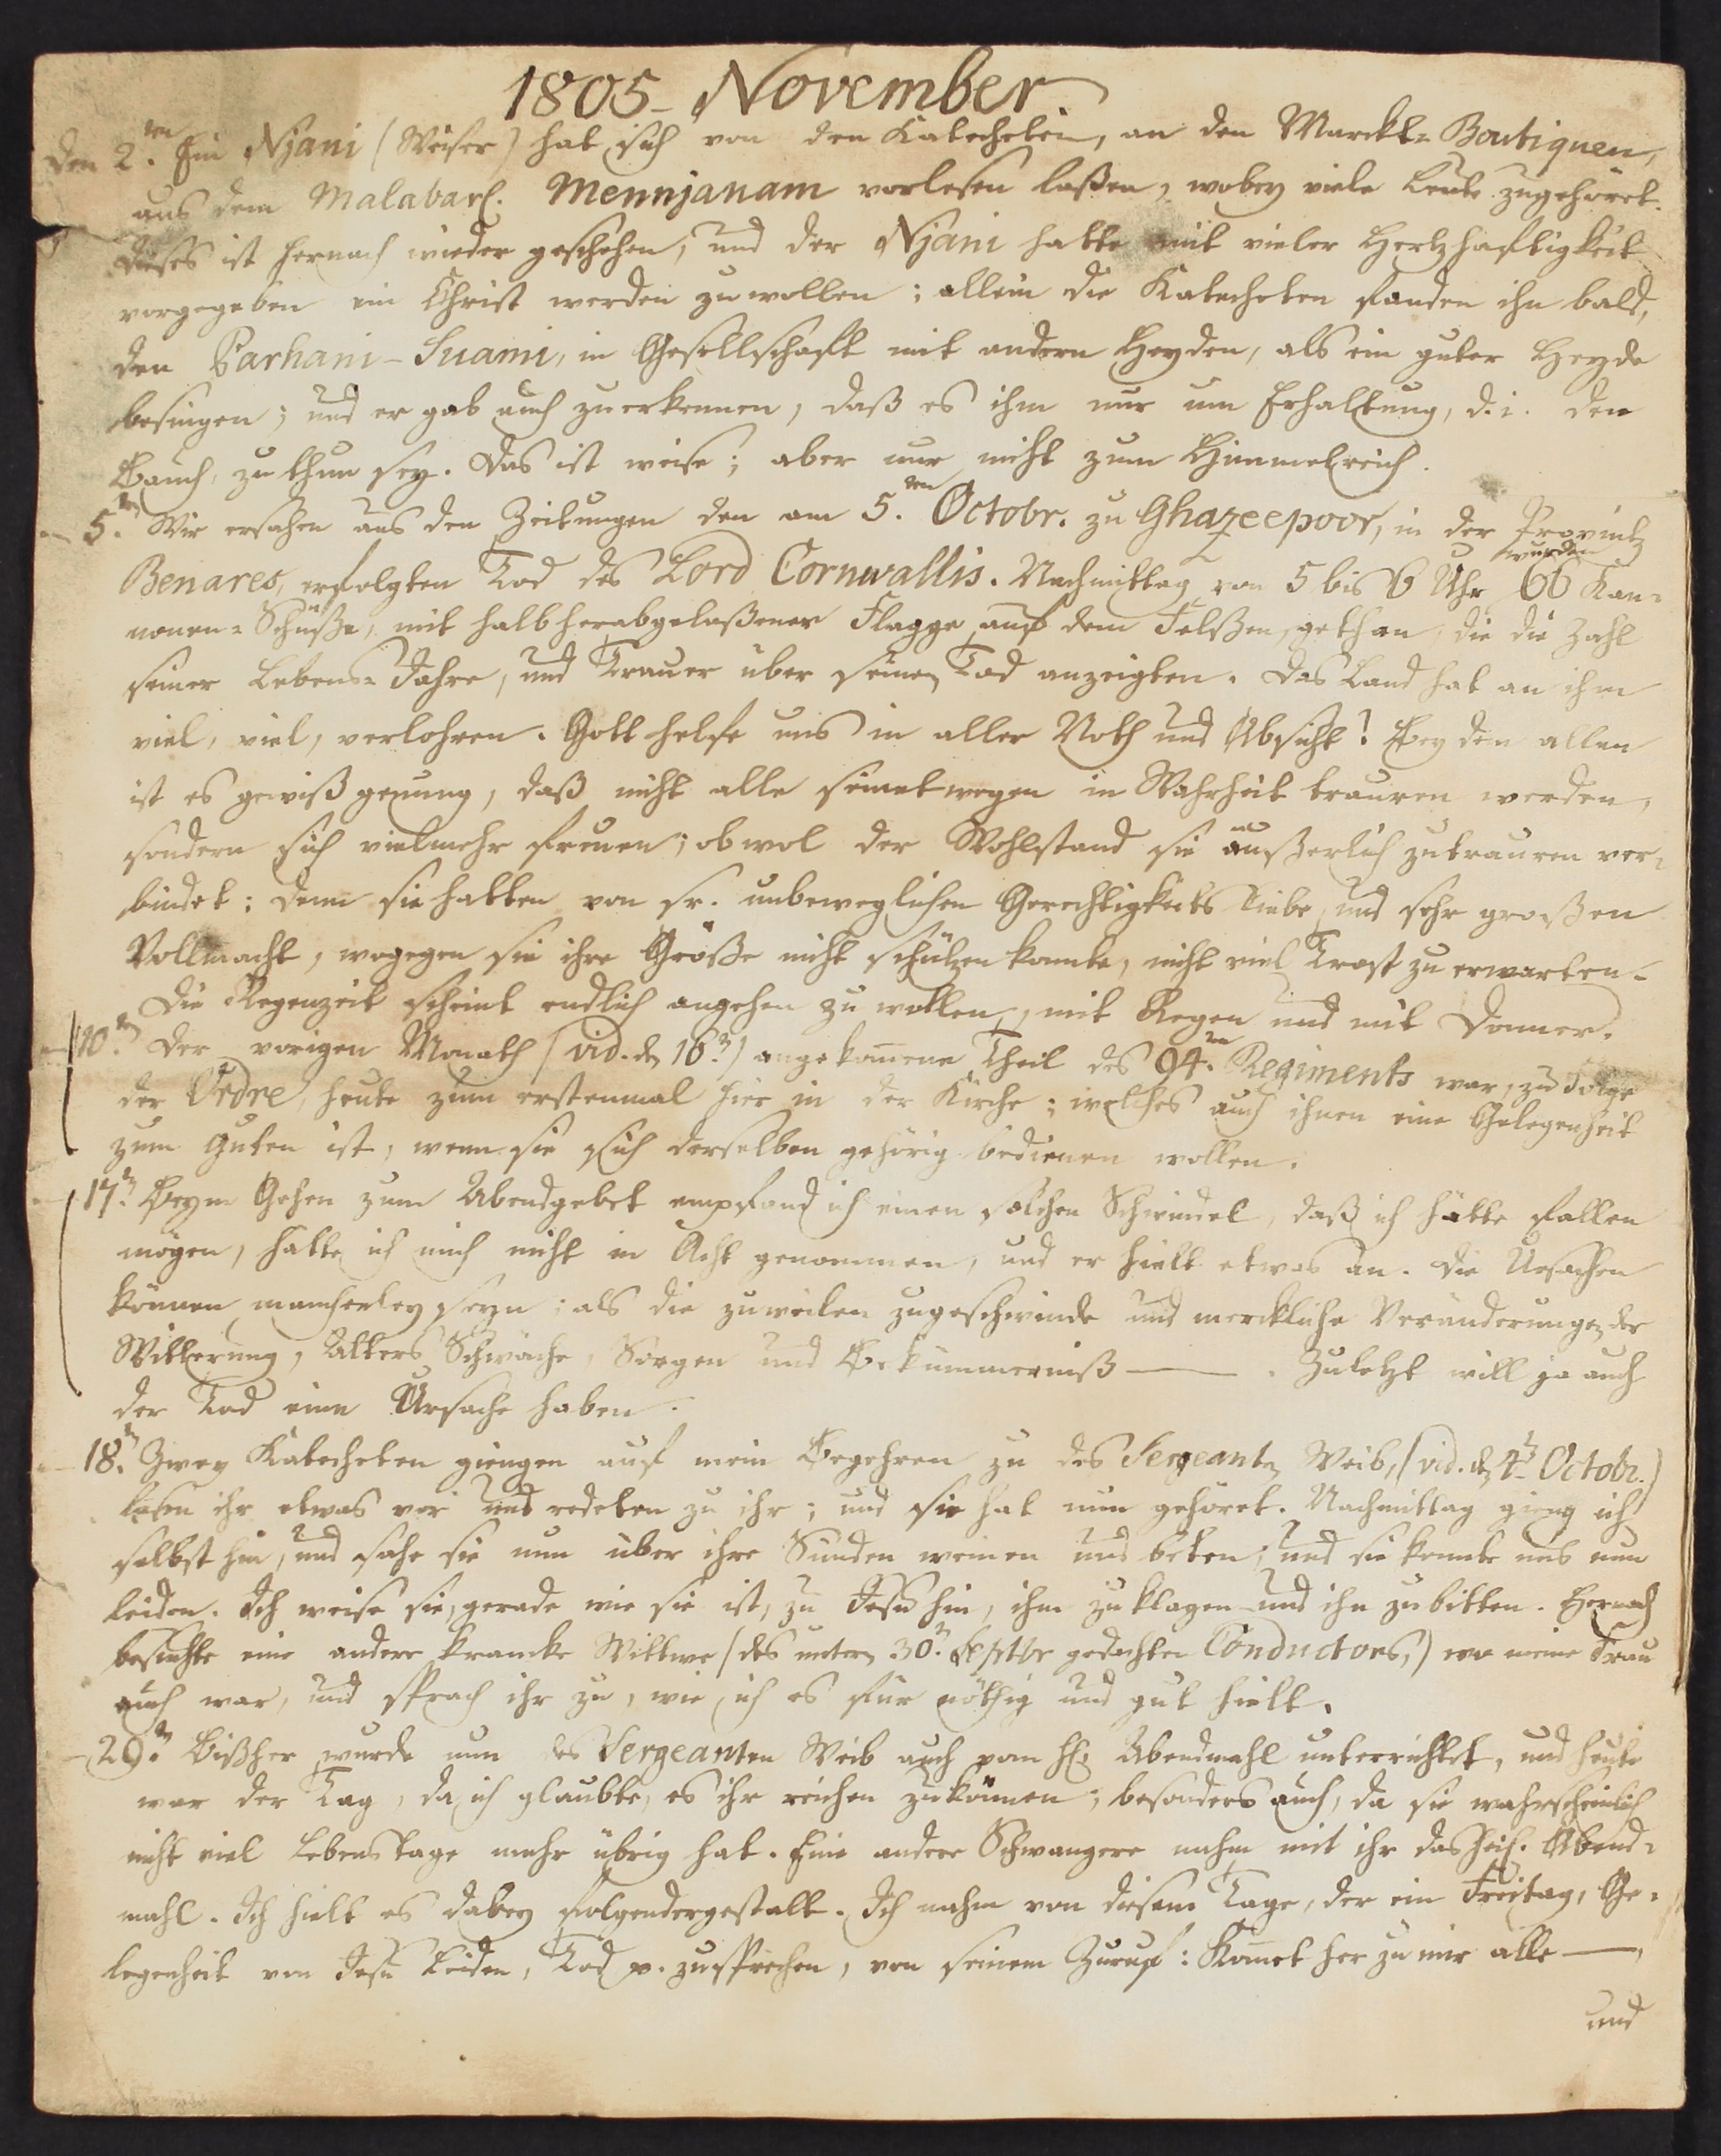 1805 - November.
den 2.ten Ein Njani (Weiser) hat sich von den Katecheten, an den Marckt-Boutiquen,
aus dem Malabarl. Mennjanam vorlesen laßen, wobey viele Leute zugehöret.
Dieses ist hernach wieder geschehen, und der Njani hatte mit vieler Hertzhaftigkeit
vorgegeben ein Christ werden zu wollen; allein die Katecheten fanden ihn bald,
den Parhani-Suami, in Gesellschaft mit andern Heyden, als ein guter Heyde
besingen; und er gab auch zu erkennen, daß es ihm nur um Erhaltung, d. i. den
Bauch, zu thun sey. Das ist weise; aber nur nicht zum Himmelreich.
5.ten Wir ersahen aus den Zeitungen den am 5.ten Octobr. zu Ghazeepoor, in der Provintz
Benares, erfolgten Tod des Lord Cornwallis. Nachmittag von 5 bis 6 Uhr wurden 66 Kan-
nonen-Schüße, mit halb herabgelaßener Flagge auf dem Felßen, gethan, die die Zahl
seiner Lebens-Jahre, und Trauer über seinen Tod anzeigten. Das Land hat an ihm
viel, viel, verlohren. Gott helfe uns in aller Noth und Absicht! Bey dem allen
ist es gewiß genung, daß nicht alle seinetwegen in Wahrheit trauren werden,
sondern sich vielmehr freuen; obwol der Wohlstand sie äußerlich zu trauren ver-
bindet: denn sie hatten von sr. unbeweglichen Gerechtigkeits Liebe und sehr großen
Vollmacht, wogegen sie ihre Größe nicht schützen konnte, nicht viel Trost zu erwarten.
Die Regenzeit scheint endlich angehen zu wollen, mit Regen und mit Donner.
10.ten Der vorigen Monath (vid. den 16.ten) angekommene Theil des 94.ten Regiments war, zu Folge
der Ordre, heute zum erstenmal hier in der Kirche; welches auch ihnen eine Gelegenheit
zum Guten ist, wenn sie sich derselben gehörig bedienen wollen.
17.ten Beym Gehen zum Abendgebet empfand ich einen solchen Schwindel, daß ich hätte fallen
mögen, hätte ich mich nicht in Acht genommen, und er hielt etwas an. Die Ursachen
können mancherley seyn; als die zuweilen zugeschwinde und merckliche Veränderungen der
Witterung, Alters Schwäche, Sorgen und Bekümmerniß —. Zuletzt will ja auch
der Tod eine Ursache haben.
18.ten Zwey Katecheten giengen auf mein Begehren zu des Sergeanten Weib, (vid. den 4ten Octobr.)
lasen ihr etwas vor und redeten zu ihr; und sie hat nun gehöret. Nachmittag gieng ich
selbst hin, und sahe sie nun über ihre Sünden weinen und beten; und sie konnte uns nun
leiden. Ich weise sie, gerade wie sie ist, zu Jesu hin, ihm zu klagen und ihn zu bitten. Hernach
besuchte eine andere krancke Wittwe (des unterm 30.ten Septbr gedachten Conductors,) wo meine Frau
auch war, und sprach ihr zu, wie ich es für nöthig und gut hielt.
29.ten Bißher wurde nun des Sergeanten Weib auch vom hl. Abendmahl unterrichtet, und heute
war der Tag, da ich glaubte, es ihr reichen zu können; besonders auch, da sie wahrscheinlich
nicht viel Lebenstage mehr übrig hat. Eine andere Schwangere nahm mit ihr das heil. Abend-
mahl. Ich hielt es dabey folgendergestalt. Ich nahm von diesem Tage, der ein Freitag, Ge-
legenheit von Jesu Leiden, Tod p. zu sprechen, von seinem Zuruf: Komet her zu mir alle —,
und